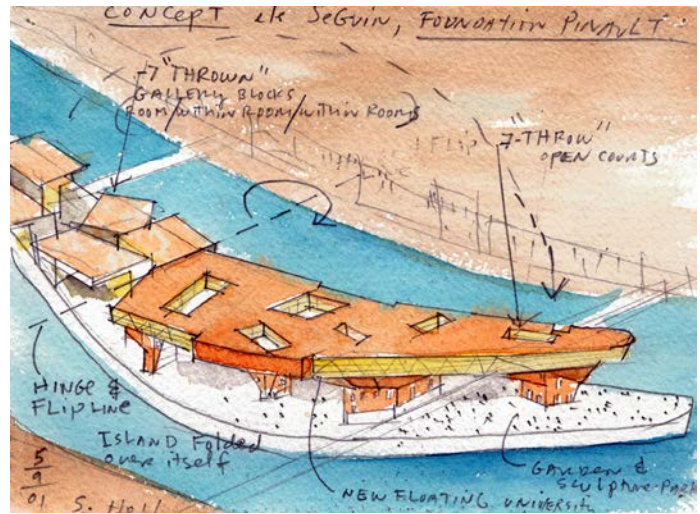 CONCEPT ile SeGuin, FOUNDATION PINAULT
7 "THROWN"
GALLERY BLOCKS
ROOM/WITHIN ROOM/WITHIN ROOMS
FLIP
7-"THROW"
OPEN COURTS
HINGE &
FLIP LINE
ISLAND FOLDED
over itself
GARDEN &
Sculpture-Park
NEW FLOATING UNIVERSITY
5
9
01
S. Holl